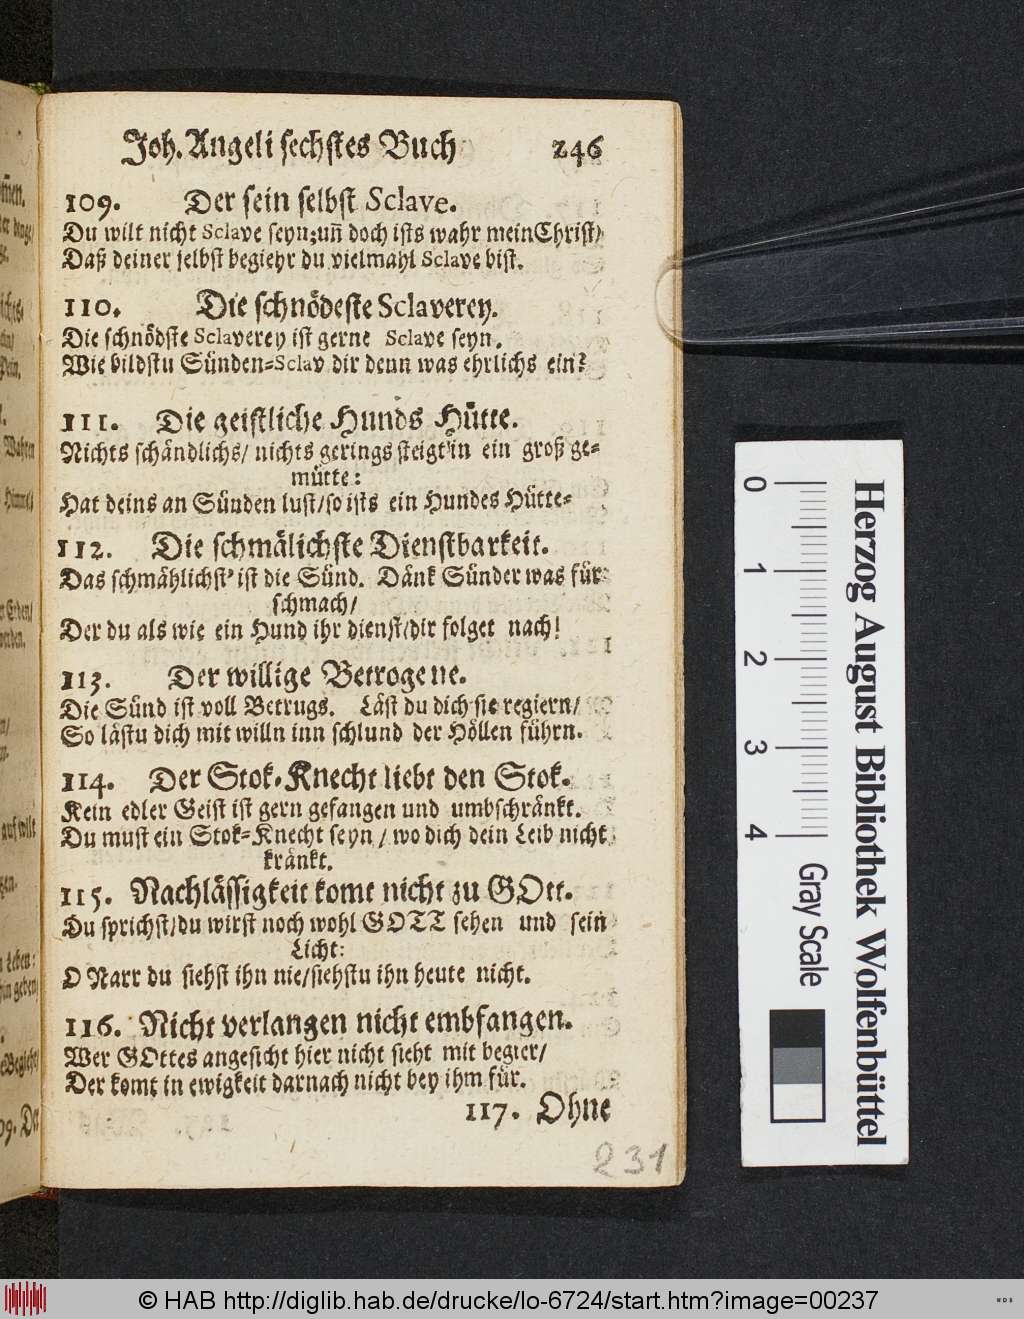 Joh. Angeli sechstes Buch 246
109. Der sein selbst Sclave.
Du wilt nicht Sclave seyn; uñ doch ists wahr mein Christ/
Daß deiner selbst begiehr du vielmahl Sclave bist.
110. Die schnödeste Sclaverey.
Die schnödste Sclaverey ist gerne Sclave seyn.
Wie bildstu Sünden-Sclav dir denn was ehrlichs ein?
111. Die geistliche Hunds Hütte.
Nichts schändlichs/ nichts gerings steigt'in ein groß ge-
mütte:
Hat deins an Sünden lust/so ists ein Hundes Hütte-
112. Die schmälichste Dienstbarkeit.
Das schmählichst' ist die Sünd. Dänk Sünder was für
schmach/
Der du als wie ein Hund ihr dienst/dir folget nach!
113. Der willige Betrogene.
Die Sünd ist voll Betrugs. Läst du dich sie regiern/
So lästu dich mit willn inn schlund der Höllen führn.
114. Der Stok-Knecht liebt den Stok.
Kein edler Geist ist gern gefangen und umbschränkt.
Du must ein Stok-Knecht seyn / wo dich dein Leib nicht
kränkt.
115. Nachlässigkeit komt nicht zu GOtt.
Du sprichst/du wirst noch wohl GOTT sehen und sein
Licht:
O Narr du siehst ihn nie/siehstu ihn heute nicht.
116. Nicht verlangen nicht embfangen.
Wer GOttes angesicht hier nicht sieht mit begier/
Der komt in ewigkeit darnach nicht bey ihm für.
117. Ohne
231
Herzog August Bibliothek Wolfenbüttel
0 1 2 3 4 Gray Scale
© HAB http://diglib.hab.de/drucke/lo-6724/start.htm?image=00237